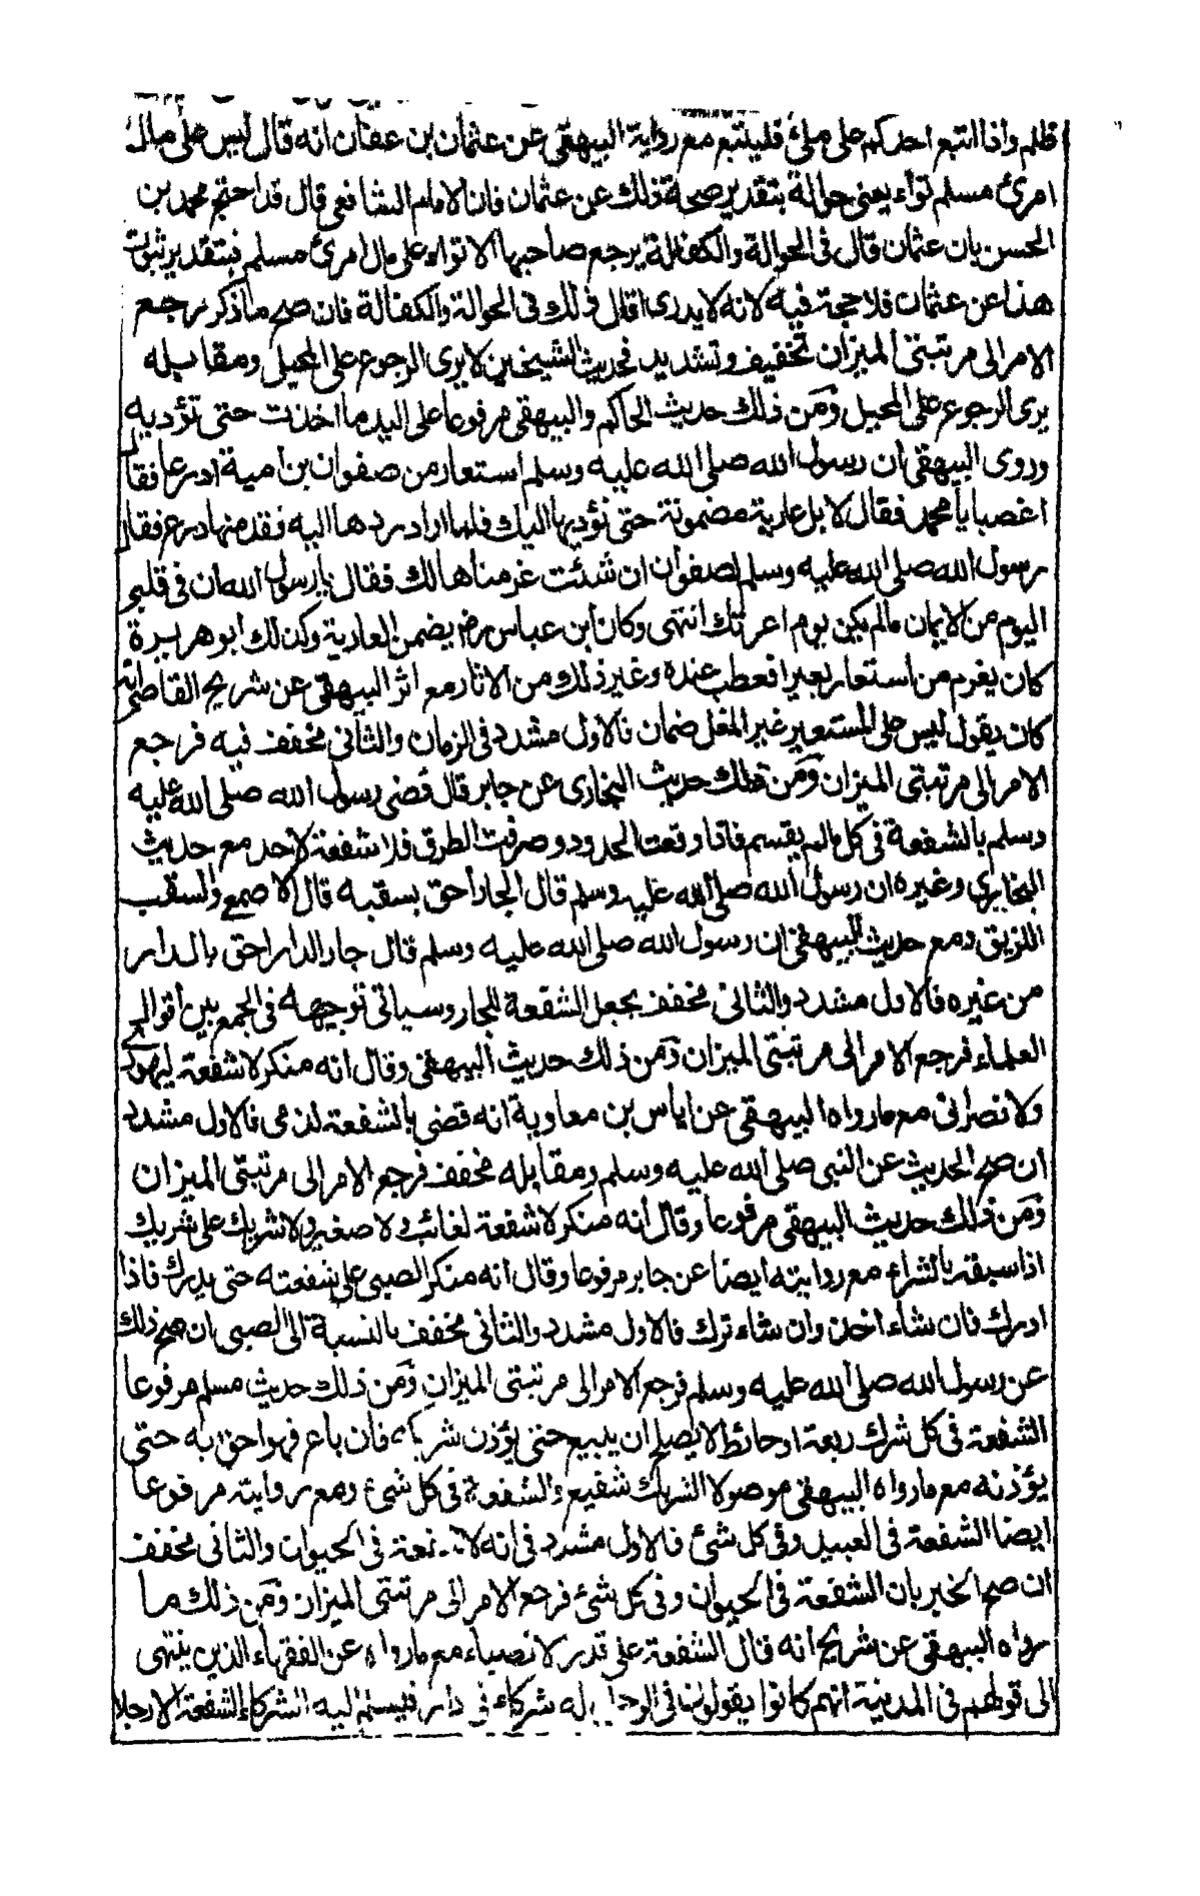 ظلم واذا اتبع احدكم على ملئ فليتبع مع رواية البيهقي عن عثمان بن عفان انه قال ليس على مال
امرئ مسلم تواء يعنى حوالة بتقدير صحة ذلك عن عثمان فان الامام الشافعي قال قد احتج محمد بن
الحسن بان عثمان قال في الحوالة والكفالة يرجع صاحبها لا تواء على مال امرئ مسلم فبتقدير ثبوت
هذا عن عثمان فلا حجة فيه لانه لا يدرى اقال ذلك في الحوالة والكفالة فان صح ما ذكر رجع
الامر الى مرتبتى الميزان تخفيف وتشديد فحديث الشيخين لا يرى الرجوع على المحيل ومقابله
يرى الرجوع على المحيل ومن ذلك حديث الحاكم والبيهقي مرفوعا على اليد ما اخذت حتى تؤديه
وروى البيهقي ان رسول الله صلى الله عليه وسلم استعار من صفوان بن امية ادرعا فقال
اغصبا يا محمد فقال لا بل عارية مضمونة حتى نؤديها اليك فلما اراد ردها اليه فقد منها درع فقال
رسول الله صلى الله عليه وسلم لصفوان ان شئت غرمناها لك فقال يا رسول الله ان في قلبي
اليوم من الايمان مالم يكن يوم اعرتك انتهى وكان ابن عباس رض يضمن العارية وكذلك ابو هريرة
كان يغرم من استعار بعيرا فعطب عنده وغير ذلك من الاثار مع اثر البيهقي عن شريح القاضي انه
كان يقول ليس على المستعير غير المغل ضمان فالاول مشدد في الزمان والثاني مخفف فيه فرجع
الامر الى مرتبتى الميزان ومن ذلك حديث البخارى عن جابر قال قضى رسول الله صلى الله عليه
وسلم بالشفعة في كل مالم يقسم فاذا وقعت الحدود وصرفت الطرق فلا شفعة لاحد مع حديث
البخارى وغيره ان رسول الله صلى الله عليه وسلم قال الجار أحق بسقبه قال الاصمعي والسقب
اللزيق ومع حديث البيهقي ان رسول الله صلى الله عليه وسلم قال جار الدار احق بالدار
من غيره فالاول مشدد والثاني مخفف بجعل الشفعة للجار وسياتي توجيهه في الجمع بين أقوال
العلماء فرجع الامر الى مرتبتى الميزان ومن ذلك حديث البيهقي وقال انه منكر لا شفعة ليهودي
ولا نصراني مع ما رواه البيهقي عن اياس بن معاوية انه قضى بالشفعة لذمى فالاول مشدد
ان صح الحديث عن النبى صلى الله عليه وسلم ومقابله مخفف فرجع الامر الى مرتبتى الميزان
ومن ذلك حديث البيهقي مرفوعا وقال أنه منكر لا شفعة لغائب ولا صغير ولا شريك على شريك
اذا سبقه بالشراء مع روايته ايضا عن جابر مرفوعا وقال انه منكر الصبى على شفعته حتى يدرك فاذا
ادرك فان شاء اخذ وان شاء ترك فالاول مشدد والثاني مخفف بالنسبة الى الصبى ان صح ذلك
عن رسول الله صلى الله عليه وسلم فرجع الامر الى مرتبتى الميزان ومن ذلك حديث مسلم مرفوعا
الشفعة في كل شرك ربعة او حائط لا يصلح ان يبيع حتى يؤذن شريكه فان باع فهو احق به حتى
يؤذنه مع ما رواه البيهقي موصولا الشريك شفيع والشفعة في كل شئ ومع روايته مرفوعا
ايضا الشفعة في العبيد وفي كل شئ فالاول مشدد في انه لا شفعة في الحيوان والثاني مخفف
ان صح الخبر بان الشفعة في الحيوان وفي كل شئ فرجع الامر الى مرتبتى الميزان ومن ذلك ما
رواه البيهقي عن شريح انه قال الشفعة على قدر الانصباء مع ما رواه عن الفقهاء الذين ينتهى
الى قولهم في المدينة انهم كانوا يقولون في الرجل له شركاء في دار فيسلم اليه الشركاء الشفعة الا رجلا